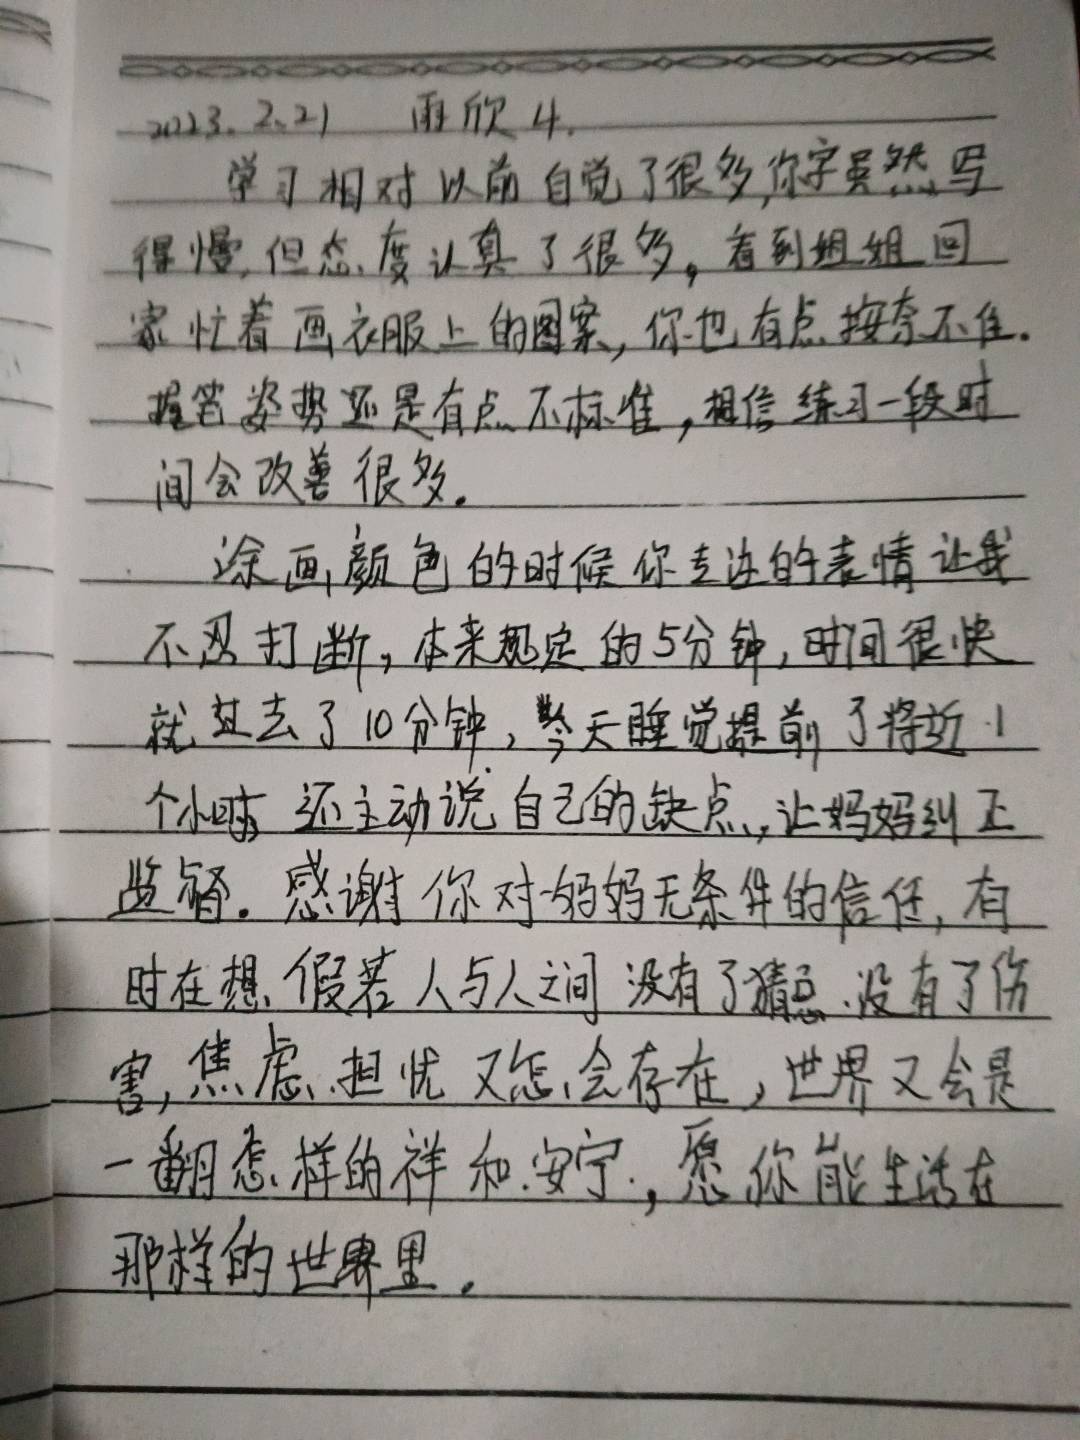 2023.2.21 雨欣4.
学习相对以前自觉了很多,你字虽然写
得慢,但态度认真了很多。看到姐姐回
家忙着画衣服上的图案,你也有点按奈不住.
握笔姿势还是有点不标准,相信练习一段时
间会改善很多。
涂画颜色的时候你专注的表情让我
不忍打断,本来规定的5分钟,时间很快
就过去了10分钟,今天睡觉提前了将近1
个小时,还主动说自己的缺点,让妈妈纠正
监督。感谢你对妈妈无条件的信任,有
时在想,假若人与人之间没有了猜忌、没有了伤
害,焦虑、担忧又怎会存在,世界又会是
一翻怎样的祥和.安宁.,愿你能生活在
那样的世界里.